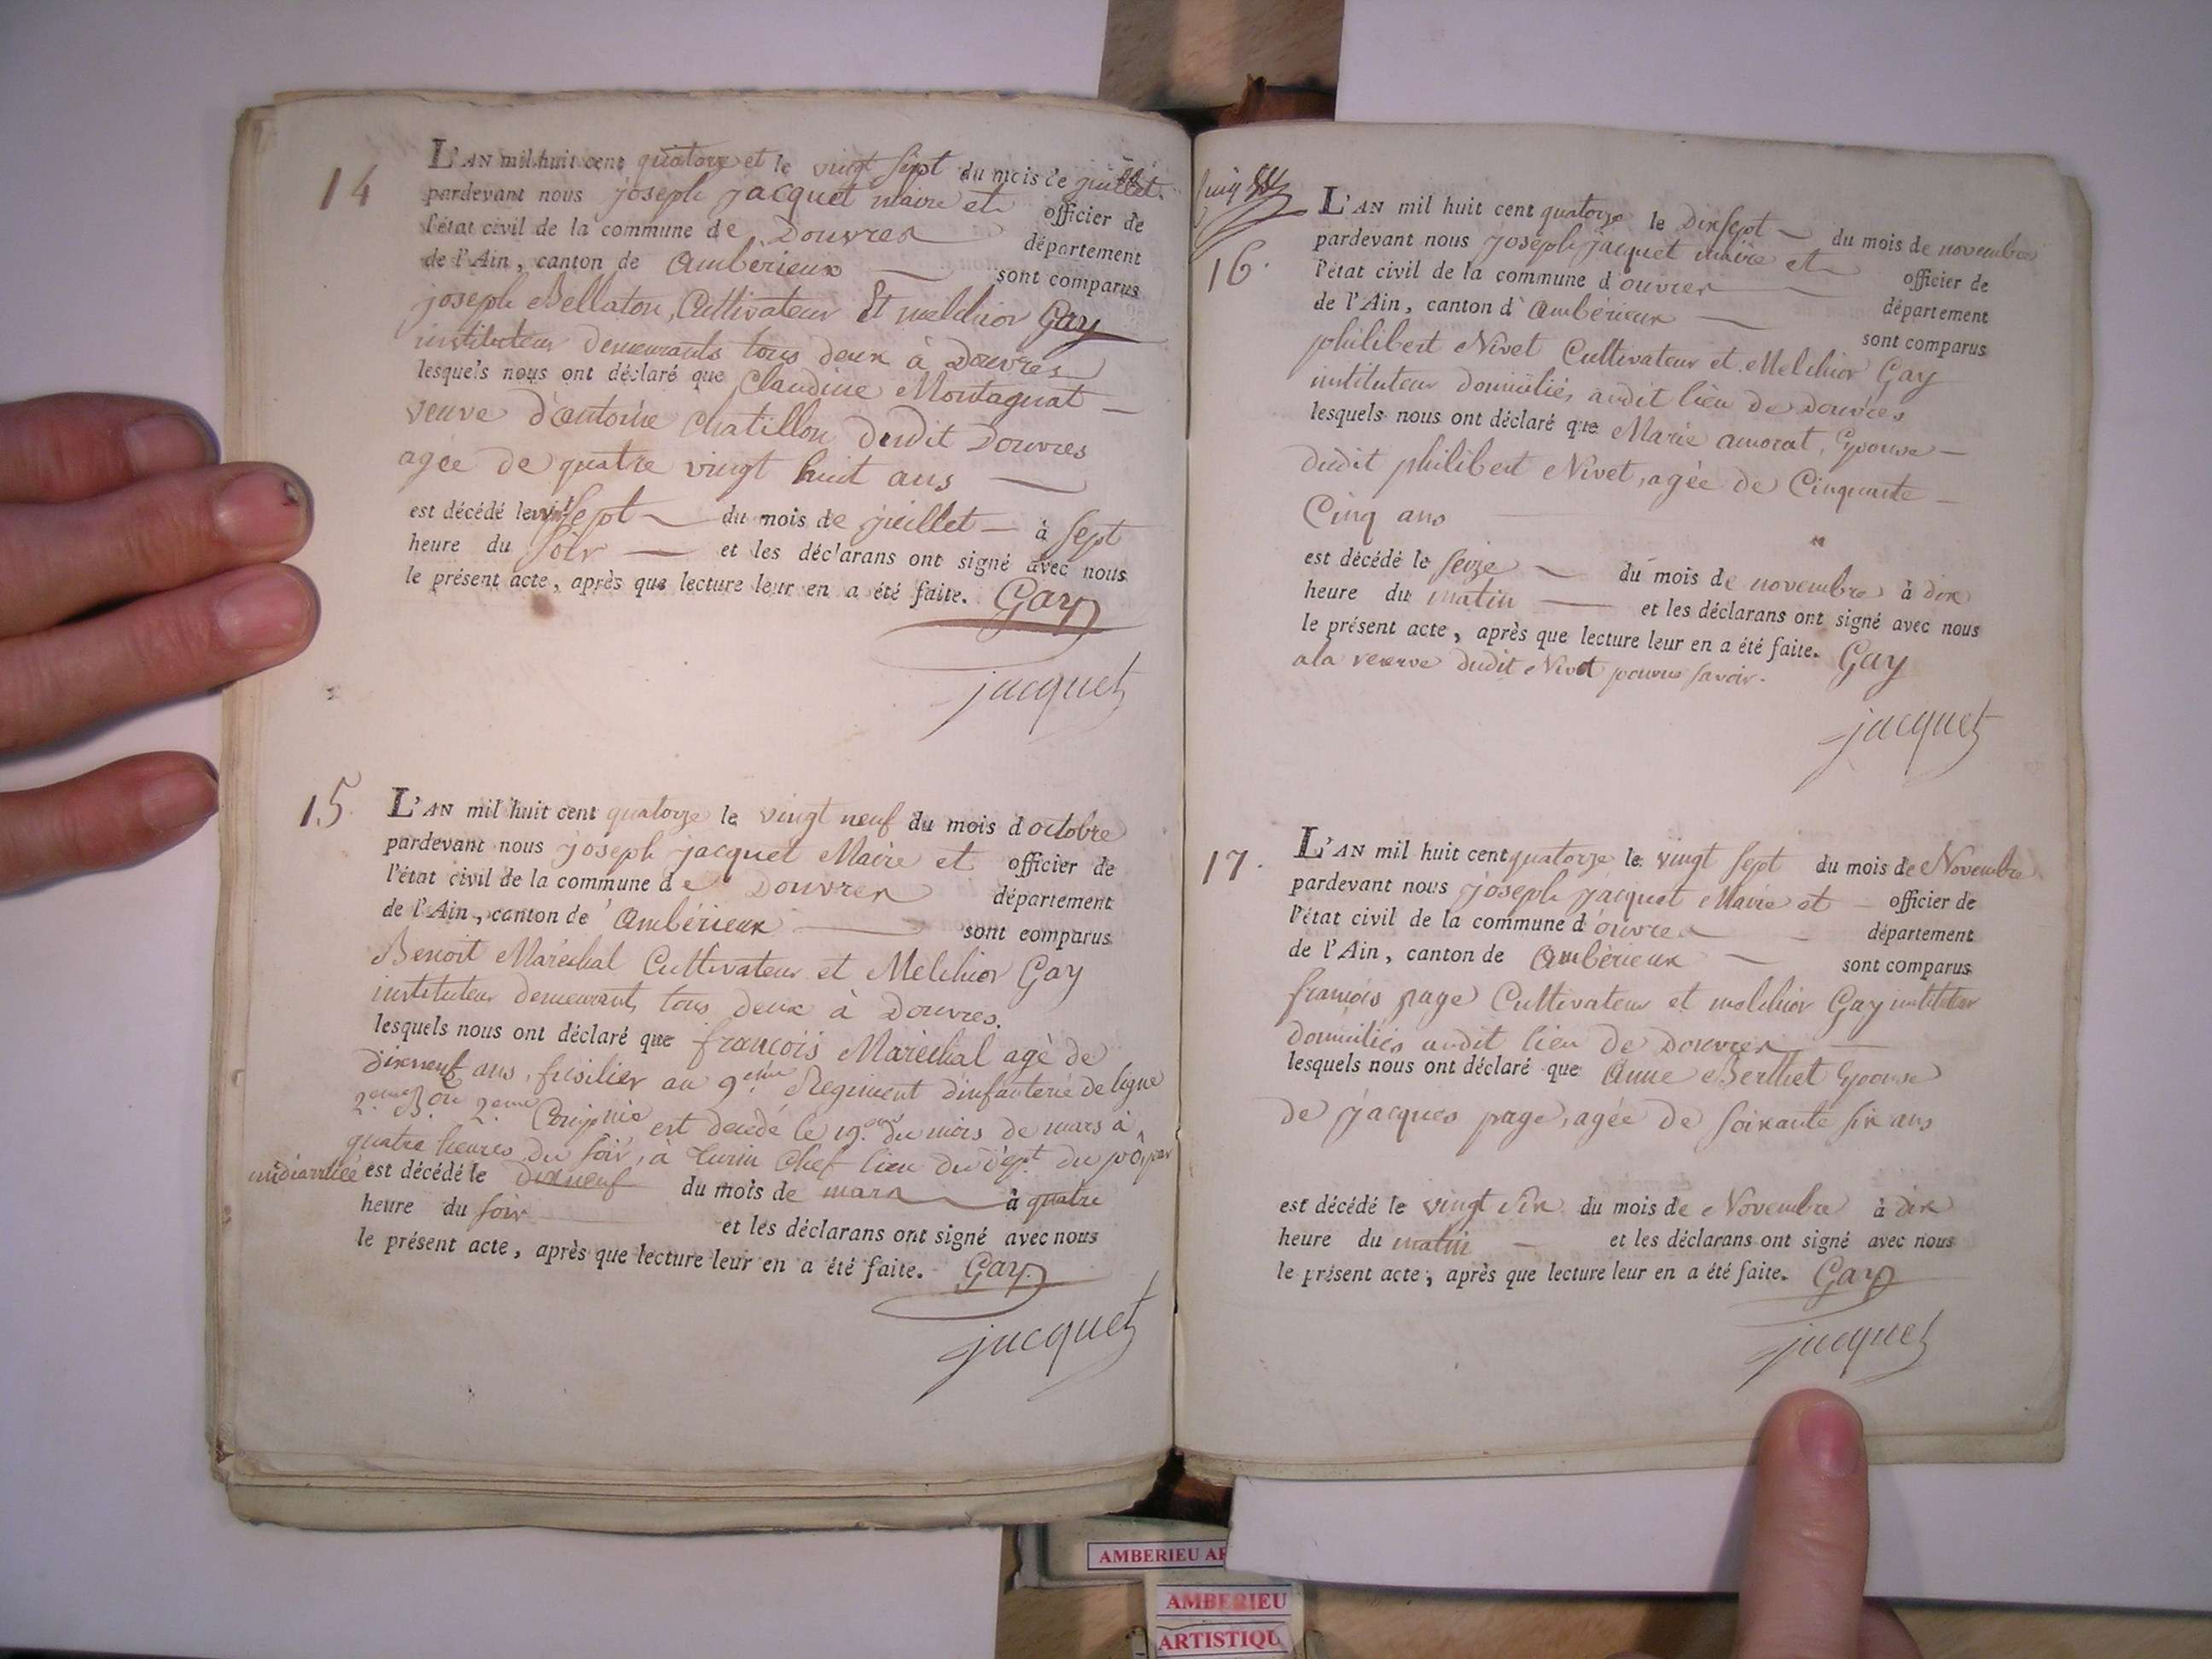 14
L'AN mil huit cent quatorze et le vingt sept du mois de juillet
pardevant nous joseph jacquet maire et officier de
l'état civil de la commune de Douvres département
de l'Ain, canton de Ambérieux sont comparus
joseph Bellaton, Cultivateur Et melchior Gay
instituteur demeurants tous deux à Douvres
lesquels nous ont déclaré que Claudine Montagnat
veuve d'antoine Chatillon dudit Douvres
agée de quatre vingt huit ans
est décédé le vingt Sept du mois de juillet à Sept
heure du soir et les déclarans ont signé avec nous
le présent acte, après que lecture leur en a été faite. Gay
jacquet
15.
L'AN mil huit cent quatorze le vingt neuf du mois d octobre
pardevant nous joseph jacquet Maire et officier de
l'état civil de la commune de Douvres département
de l'Ain, canton de Ambérieux sont comparus
Benoit Maréchal Cultivateur et Melchior Gay
instituteur demeurant tous deux à Douvres.
lesquels nous ont déclaré que françois Maréchal agé de
dixneuf ans, fusilier au 9eme Regiment d'infanterie de ligne
2eme Bon 2eme Compnie est decedé le 19 du mois de mars à
quatre heures du soir, à Turin Chef lieu du dépt. du pô, par
est décédé le dixneuf du mois de mars à quatre
heure du soir et les déclarans ont signé avec nous
le présent acte, après que lecture leur en a été faite. Gay
jacquet
16.
L'AN mil huit cent quatorze le Dix sept du mois de novembre
pardevant nous joseph jacquet maire et officier de
l'état civil de la commune d ouvres département
de l'Ain, canton d' Ambérieux sont comparus
philibert Nivet Cultivateur et Melchior Gay
instituteur domiciliés audit lieu de Douvres
lesquels nous ont déclaré que Marie amorat, Epouse
dudit philibert Nivet, agée de Cinquante
Cinq ans
est décédé le seize du mois de novembre à dix
heure du matin et les déclarans ont signé avec nous
le présent acte, après que lecture leur en a été faite. Gay
a la reserve dudit Nivet savoir.
jacquet
17.
L'AN mil huit cent quatorze le vingt sept du mois de Novembre
pardevant nous joseph jacquet Maire et officier de
l'état civil de la commune d ouvres département
de l'Ain, canton de Ambérieux sont comparus
françois page Cultivateur et melchior Gay instituteur
domiciliés audit lieu de Douvres
lesquels nous ont déclaré que Anne Berthet Epouse
de jacques page, agée de soixante six ans
est décédé le vingt six du mois de Novembre à dix
heure du matin et les déclarans ont signé avec nous
le présent acte, après que lecture leur en a été faite. Gay
jacquet
AMBERIEU
AMBERIEU
ARTISTIQU